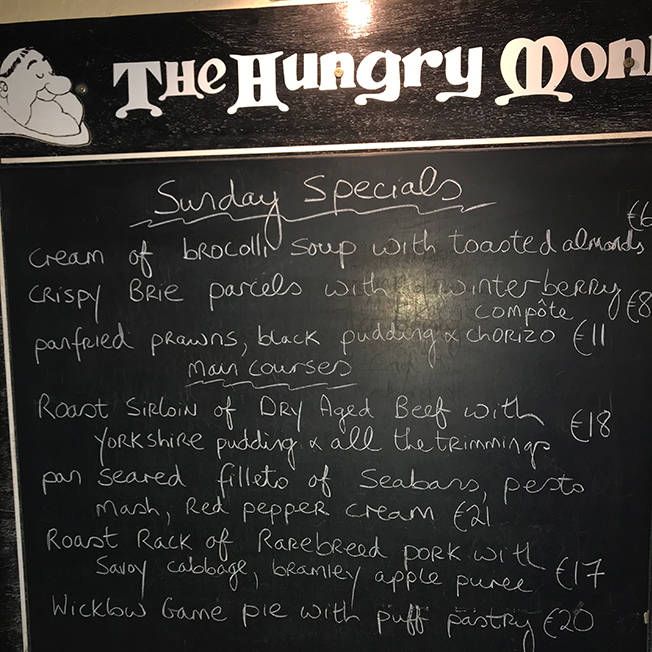 The Hungry Mon
Sunday Specials
€6
Cream of brocolli soup with toasted almonds
Crispy Brie parcels with a winterberry
compôte €8
panfried prawns, black pudding & chorizo €11
main courses
Roast Sirloin of Dry Aged Beef with
Yorkshire pudding & all the trimmings €18
pan seared fillets of Seabass, pesto
mash, Red pepper cream €21
Roast Rack of Rarebreed pork with
Savoy cabbage, bramley apple puree €17
Wicklow Game pie with puff pastry €20